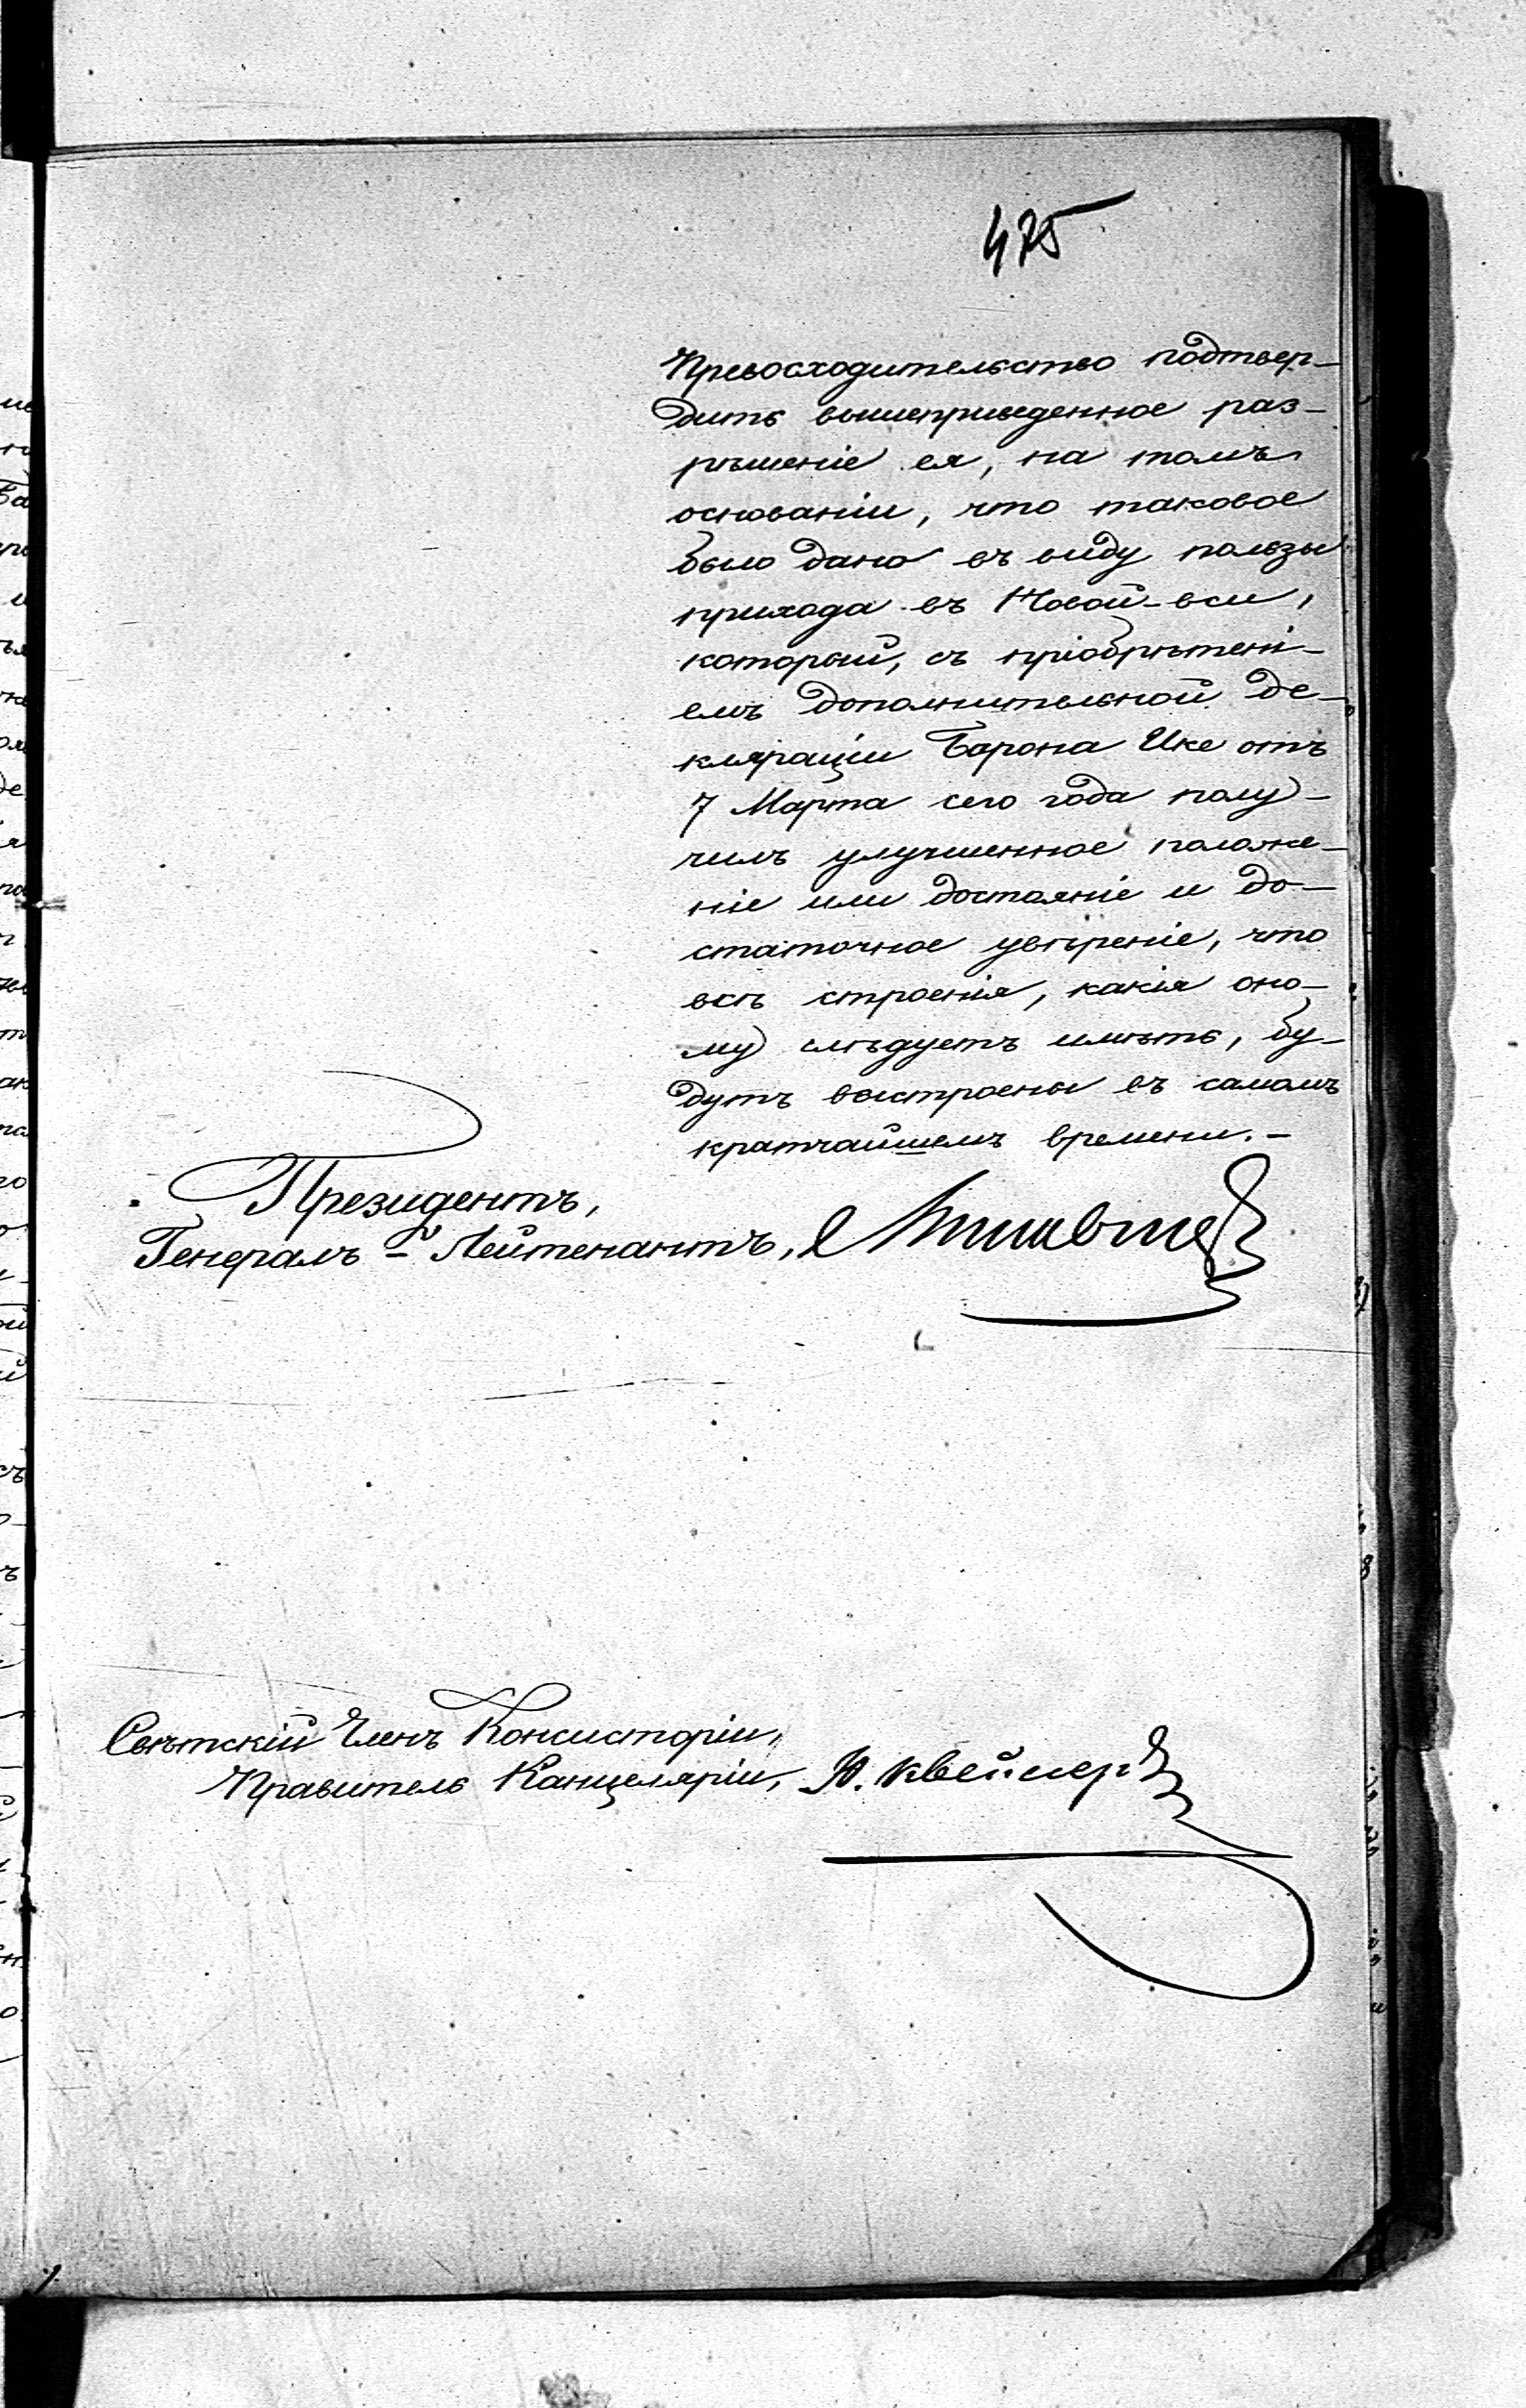 475
Превосходительство подтвер-
дить вышеприведенное раз-
рѣшеніе ея, на томъ
основаніи, что таковое
было дано въ виду пользы
прихода въ Новой-вси,
который, съ пріобрѣтені-
емъ дополнительной де-
клараціи Барона Ике отъ
7 Марта сего года полу-
чилъ улучшенное положе-
ніе или достояніе и до-
статочное увѣреніе, что
всѣ строенія, какія оно-
му слѣдуетъ имѣть, бу-
дутъ выстроены въ самомъ
кратчайшемъ времени.-
Президентъ,
Генералъ-Лейтенантъ,
Свѣтскій Членъ Консисторіи,
Правитель Канцеляріи, Ю.